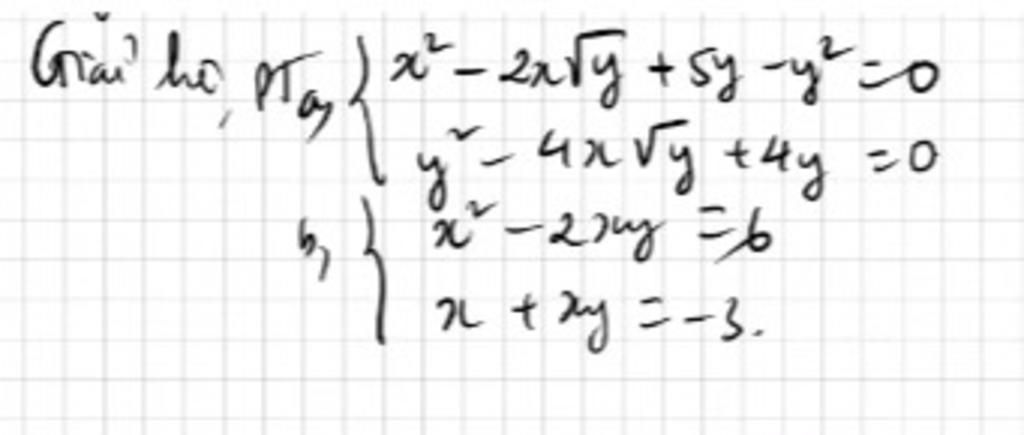 Giải hệ PT a, { x² - 2x√y + 5y - y² = 0
y² - 4x√y + 4y = 0
b, { x² - 2xy = 6
x + xy = -3.